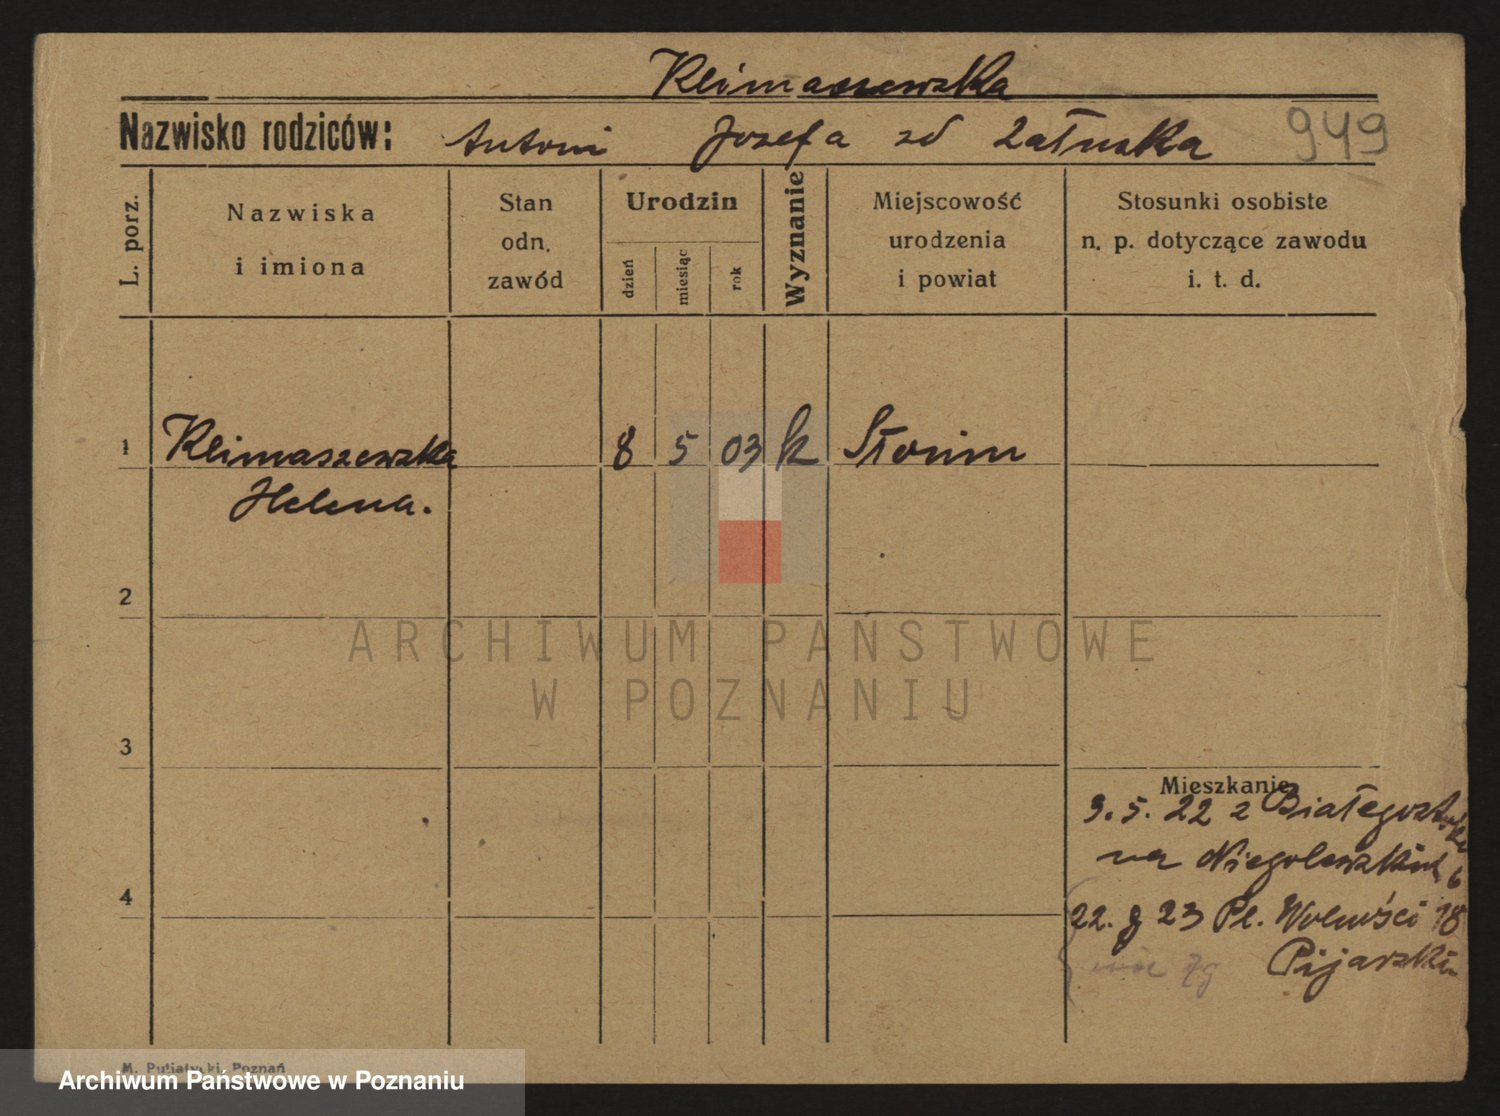 Klimaszewska
Nazwisko rodziców: Antoni Jozefa zd Załuska 949
L. porz.
Nazwiska
i imiona
Stan
odn.
zawód
Urodzin
dzień
miesiąc
rok
Wyznanie
Miejscowość
urodzenia
i powiat
Stosunki osobiste
n. p. dotyczące zawodu
i. t. d.
1 Klimaszewska 8 5 03 k Słonim
Helena.
2
ARCHIWUM PAŃSTWOWE
W POZNANIU
3
Mieszkanie
3. 5. 22 z Białegostoku
na Niegolewskich 6
4
22. 8 23 Pl. Wolności 18
Pijarski
M. Putiatycki, Poznań
Archiwum Państwowe w Poznaniu